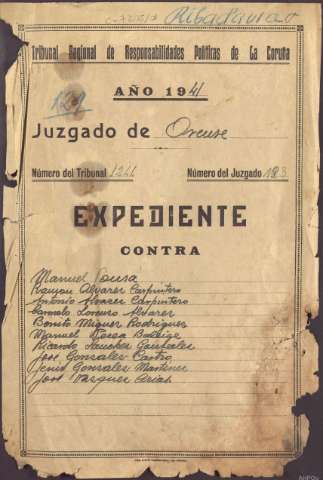 Ribadavia
Tribunal Regional de Responsabilidades Políticas de La Coruña
129
AÑO 1941
Juzgado de Orense
Número del Tribunal 1241 Número del Juzgado 183
EXPEDIENTE
CONTRA
Manuel Sousa
Ramon Alvarez Carpintero
Antonio Alvarez Carpintero
Lorenzo Alvarez
Benito Miguez Rodriguez
Manuel
Ricardo Sanchez Gonzalez
José Gonzalez Castro
Genis Gonzalez Martinez
José Vazquez Arias